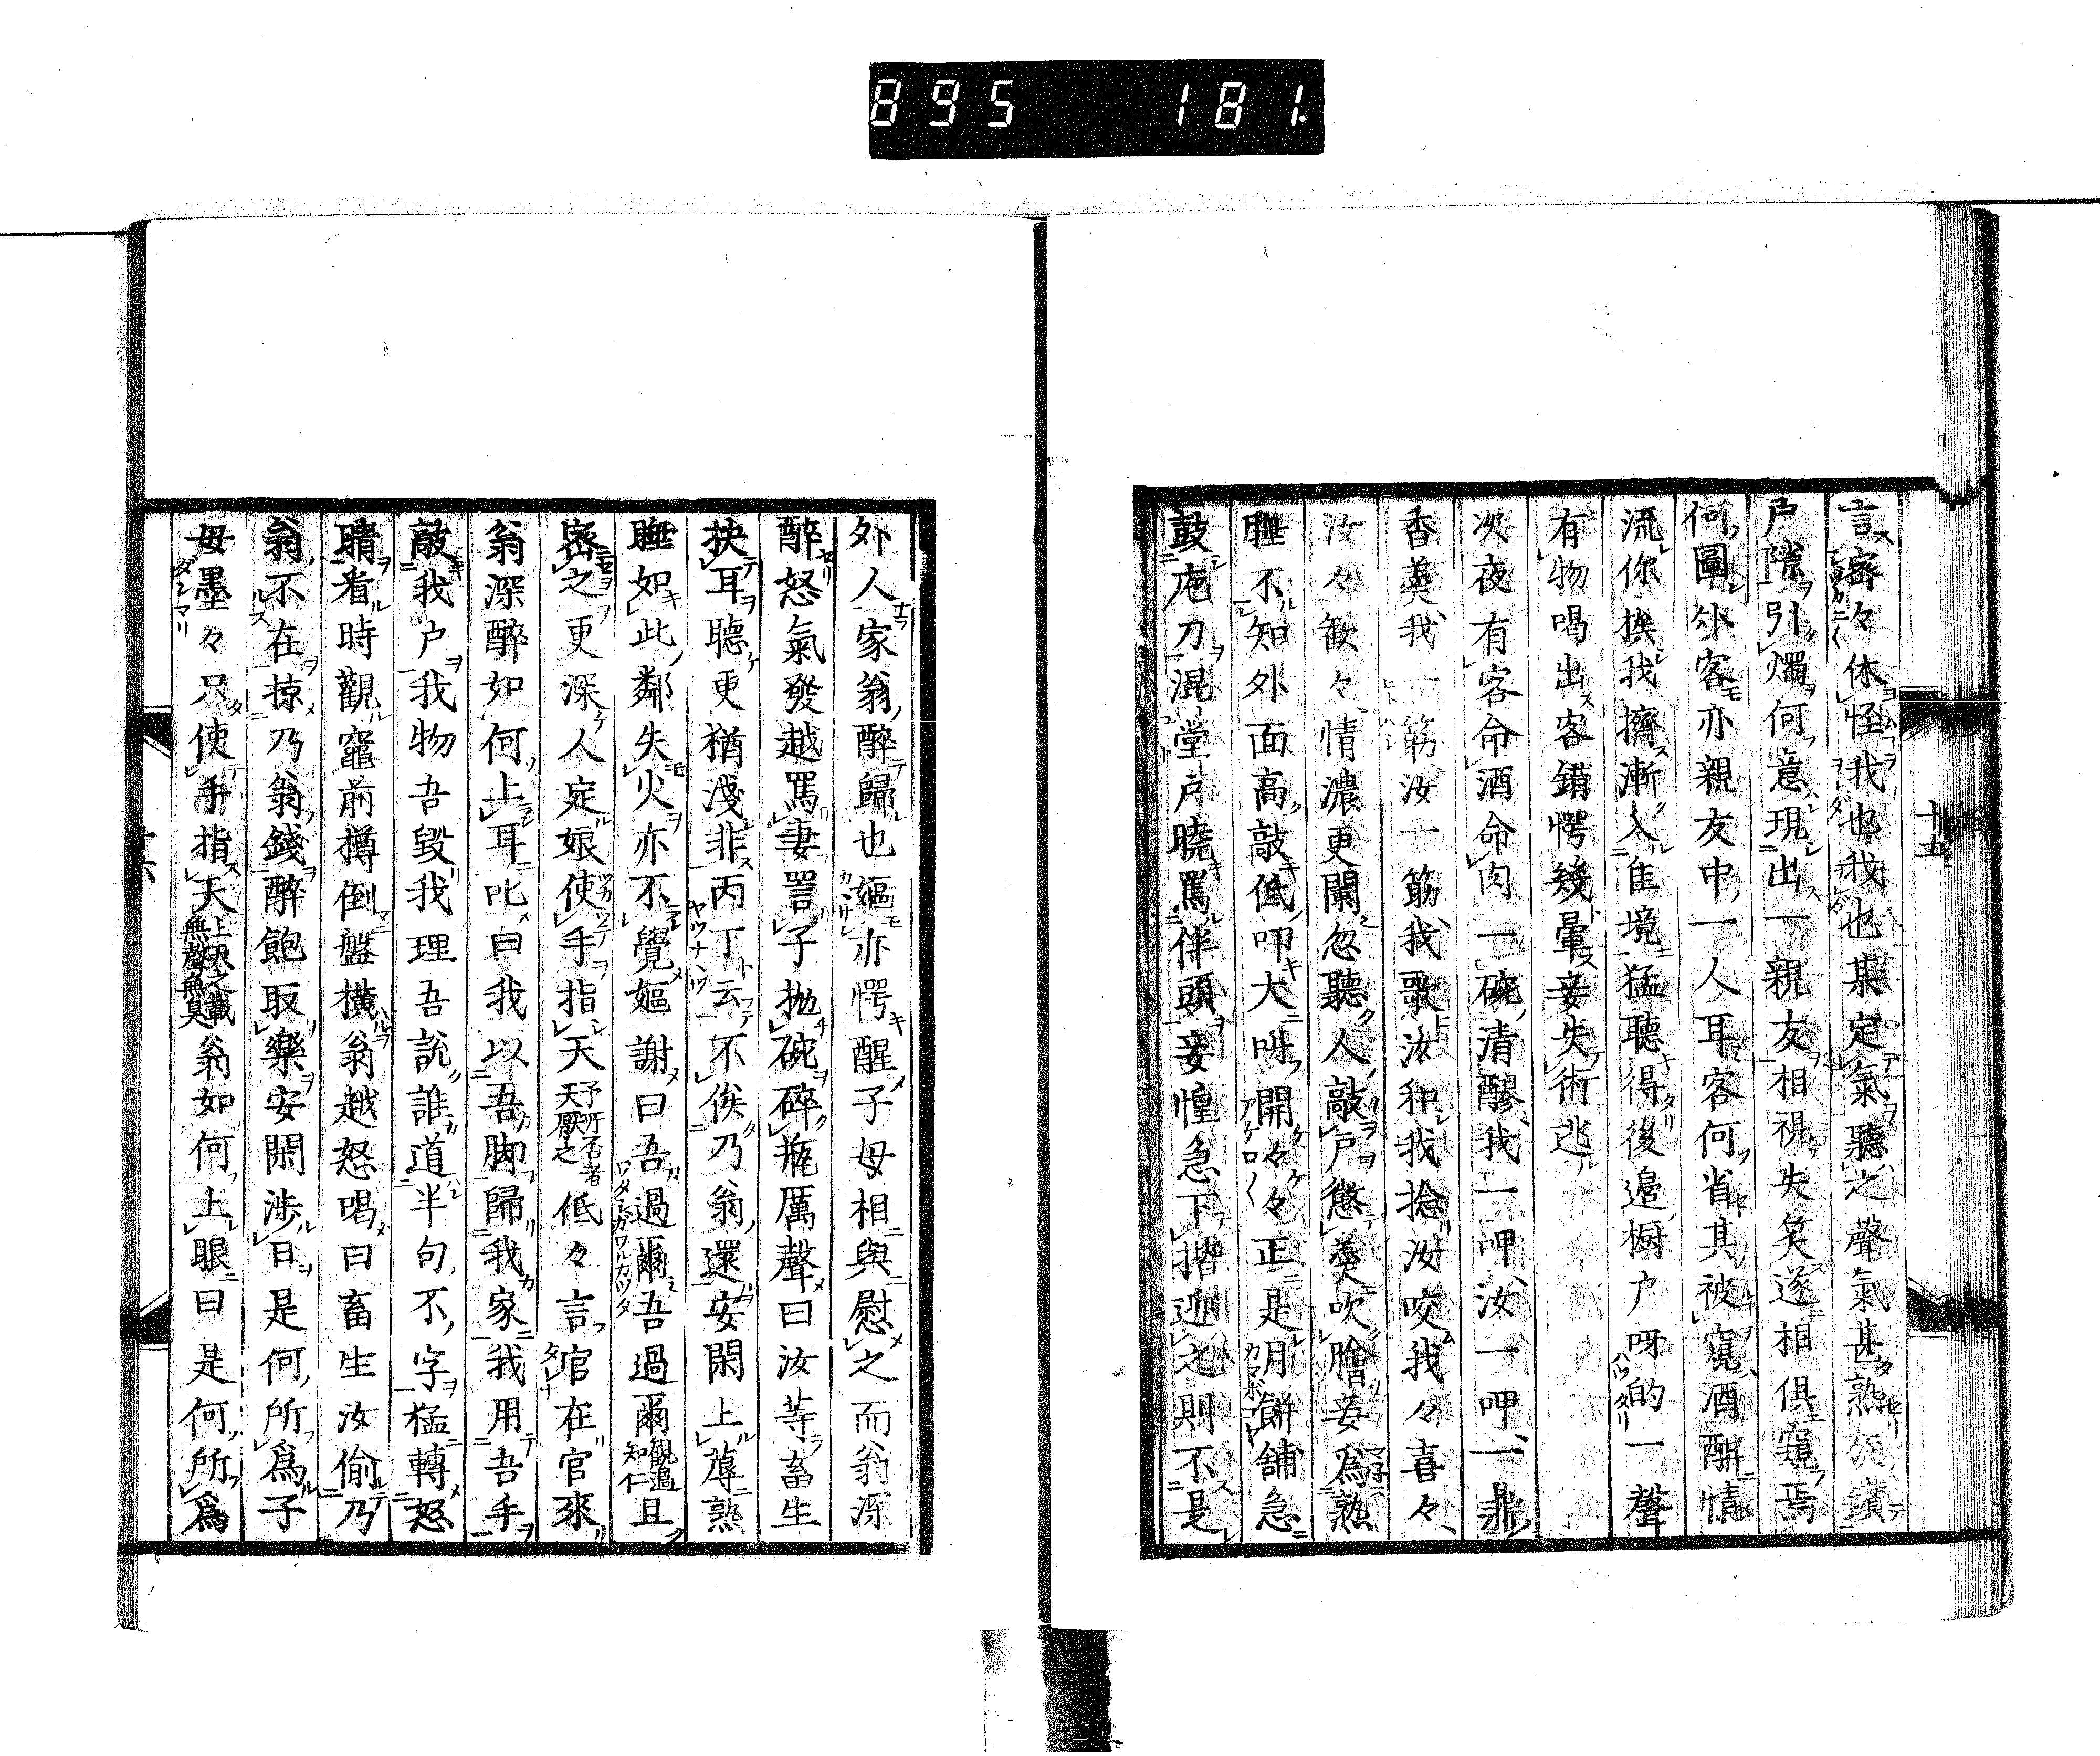 895 181.
十五
言密々休怪我也我也某定氣聽之聲氣甚熟 鑚
戸隙引燭何意現出一親友相視失笑遂相倶窺焉
何圖外客亦親友中一人耳客何省其被窺酒酣情
流你挨我擠漸入佳境猛聽得後邊橱戸呀的一聲
有物喝出客錯愕幾暈妾失術逃
次夜有客命酒命肉一碗清醪我一呷汝一呷一鼎
香羮我一筋汝一筋我歌汝和我捻汝咬我々喜々
汝々歓々情濃更闌忽聽人敲戸懲羮吹膾妾爲熟
睡不知外面高敲低叩大叫開々々正是月餅舗急
鼓庖刀混堂戸曉罵伴頭妾惶急下揩迎之則不是
外人家翁醉歸也嫗亦愕醒子母相與慰之而翁深
醉怒氣發越罵妻詈子抛碗碎瓶厲聲曰汝等畜生
抉耳聽更猶淺非丙丁云不俟乃翁還安閑上蓐熟
睡如此鄰失火亦不覺嫗謝曰吾過爾吾過爾觀過知仁且
密之更深人定娘使手指天予所否者天厭之低々言官在官來
翁深醉如何上耳叱曰我以吾脚歸我家我用吾手
敲我戸我物吾毀我理吾説誰道半句不字猛轉怒
睛看時觀竈前樽倒盤横翁越怒喝曰畜生汝偷乃
翁不在掠乃翁錢醉飽取樂安閑渉日是何所爲子
母墨々只使手指天上天之載無聲無臭翁如何上眼曰是何所爲